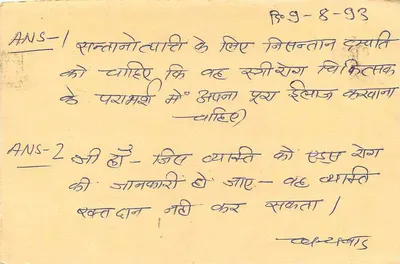 दि॰ 9-8-93
ANS-1 सन्तानोत्पाति के लिए निसन्तान दम्पति
को चाहिए कि वह स्त्रीरोग चिकित्सक
के परामर्श में अपना पूरा ईलाज करवाना
चाहिए।
ANS-2 जी हाँ - जिस व्यक्ति को एड्स रोग
की जानकारी हो जाए - वह व्यक्ति
रक्तदान नही कर सकता।
धन्यवाद